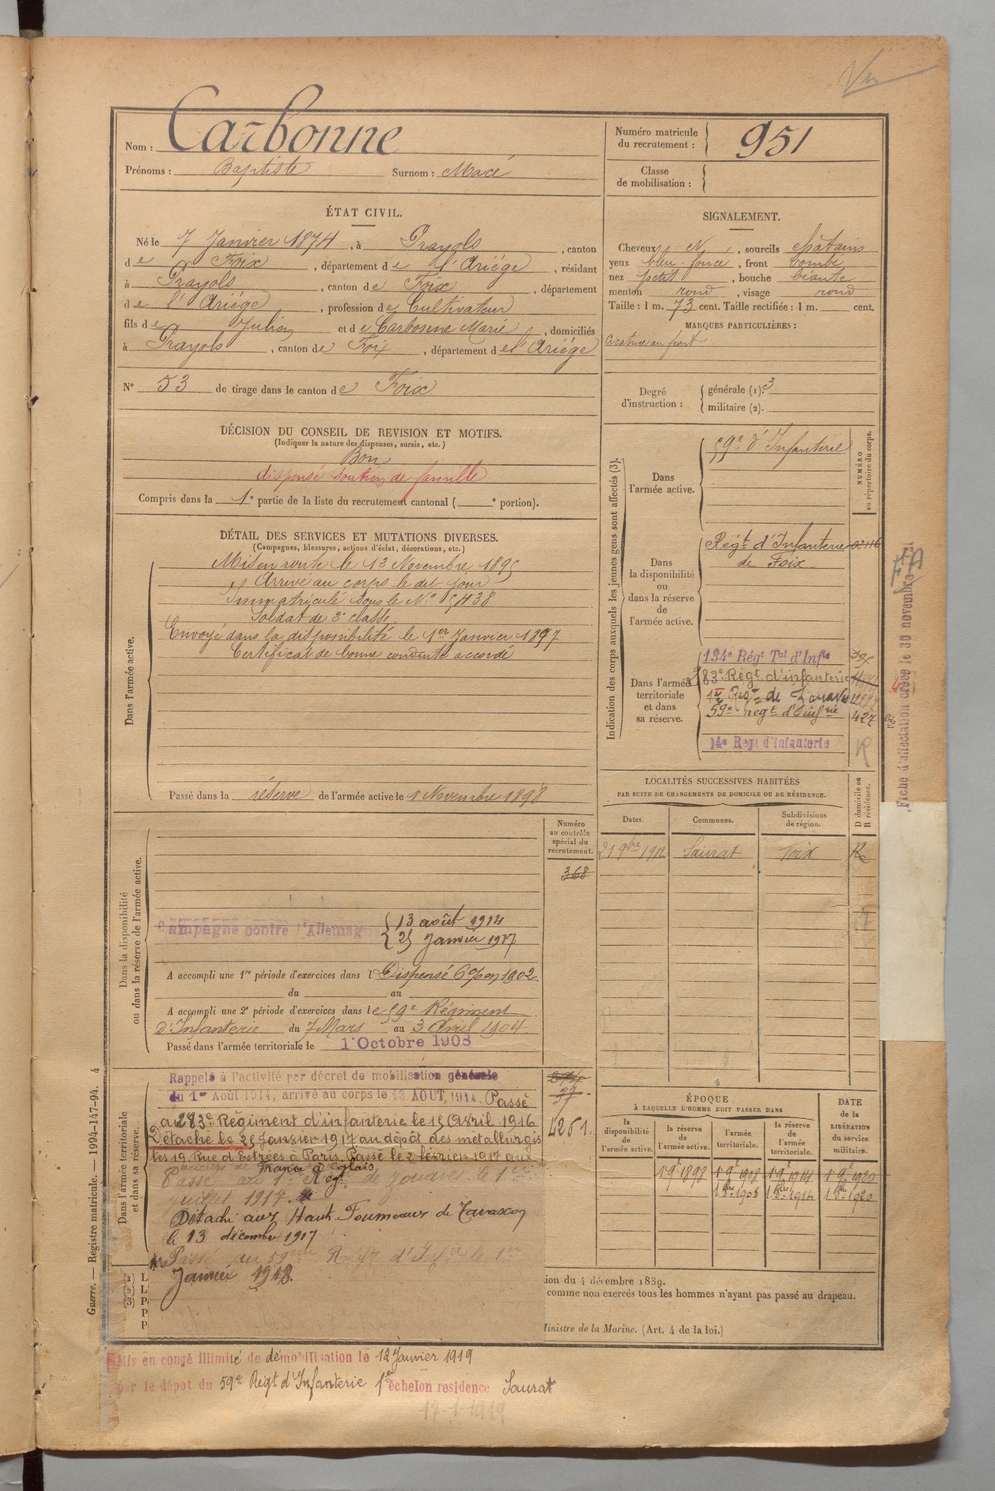 Nom : Carbonne
Prénoms : Baptiste Surnom : Macé
Numéro matricule du recrutement : 951
Classe de mobilisation :
ÉTAT CIVIL.
Né le 7 Janvier 1874, à Prayols, canton
de Foix, département de l'Ariége, résidant
à Prayols, canton de Foix, département
de l'Ariége, profession de Cultivateur
fils de Julien et de Carbonne Marie, domiciliés
à Prayols, canton de Foix, département de l'Ariége
N° 53 de tirage dans le canton de Foix
SIGNALEMENT.
Cheveux et N, sourcils châtains
yeux bleu foncé, front bombé
nez petit, bouche béante
menton rond, visage rond
Taille : 1 m. 73 cent. Taille rectifiée : 1 m. cent.
MARQUES PARTICULIÈRES :
Cicatrice au front
Degré d'instruction : générale (1). 3
militaire (2).
DÉCISION DU CONSEIL DE REVISION ET MOTIFS.
(Indiquer la nature des dispenses, sursis, etc.)
Bon
dispensé soutien de famille
Compris dans la 1e partie de la liste du recrutement cantonal ( e portion).
DÉTAIL DES SERVICES ET MUTATIONS DIVERSES.
(Campagnes, blessures, actions d'éclat, décorations, etc.)
Dans l'armée active.
Mis en route le 13 Novembre 1895
Arrivé au corps le dit jour
Immatriculé sous le N° 5438
Soldat de 2e classe
Envoyé dans la disponibilité le 1er Janvier 1897
Certificat de bonne conduite accordé
Passé dans la réserve de l'armée active le 1 Novembre 1898
Indication des corps auxquels les jeunes gens sont affectés (3).
NUMÉRO au répertoire du corps.
Dans l'armée active.
59e d'Infanterie
Dans la disponibilité ou dans la réserve de l'armée active.
Régt d'Infanterie
de Foix
Dans l'armée territoriale et dans sa réserve.
134e Régt Tal d'Infie
283e Régt d'infanterie
1er Régt de Zouaves
59e Régt d'Infrie 427
14e Regt d'Infanterie R
Fiche d'affectation créée le 30 novembre
LOCALITÉS SUCCESSIVES HABITÉES
PAR SUITE DE CHANGEMENTS DE DOMICILE OU DE RÉSIDENCE.
Dates. Communes. Subdivisions de région. D domicile ou R résidence.
21 9bre 1912 Saurat Foix R
Dans la disponibilité ou dans la réserve de l'armée active.
Numéro au contrôle spécial du recrutement.
368
Campagne contre l'Allemagne 13 août 1914
25 Janvier 1917
A accompli une 1re période d'exercices dans l Dispensé 1902
du au
A accompli une 2e période d'exercices dans le 59e Régiment
d'Infanterie du 7 Mars au 3 Avril 1904
Passé dans l'armée territoriale le 1 Octobre 1908
Dans l'armée territoriale et dans sa réserve.
Rappelé à l'activité par décret de mobilisation générale
du 1er Août 1914, arrivé au corps le 13 AOUT 1914. Passé
au 283e Régiment d'infanterie le 15 Avril 1916
Détaché le 25 Janvier 1917 au dépôt des métallurgis
tes 19 Rue d'Estrées à Paris. Passé le 2 février 1917 aux
Franco Anglais.
Passé au 1er Régt de Zouaves le 1er
Juillet 1917.
Détaché aux Hauts Fourneaux de Tarascon
le 13 décembre 1917
Passé au 59ème Rgt d'Infie le 1er
Janvier 1918.
37
4261
ÉPOQUE
À LAQUELLE L'HOMME DOIT PASSER DANS
la disponibilité de l'armée active. la réserve de l'armée active. l'armée territoriale. la réserve de l'armée territoriale.
DATE de la LIBÉRATION du service militaire.
1 9e 1898 1 9e 1908 1 9e 1914 1 9e 1920
ion du 4 décembre 1889.
comme non exercés tous les hommes n'ayant pas passé au drapeau.
Ministre de la Marine. (Art. 4 de la loi.)
Guerre. — Registre matricule. — 1994-147-94. 4
Mis en congé illimité de démobilisation le 12 Janvier 1919
par le dépot du 59e Régt d'Infanterie 1er échelon residence Saurat
17-1-1919